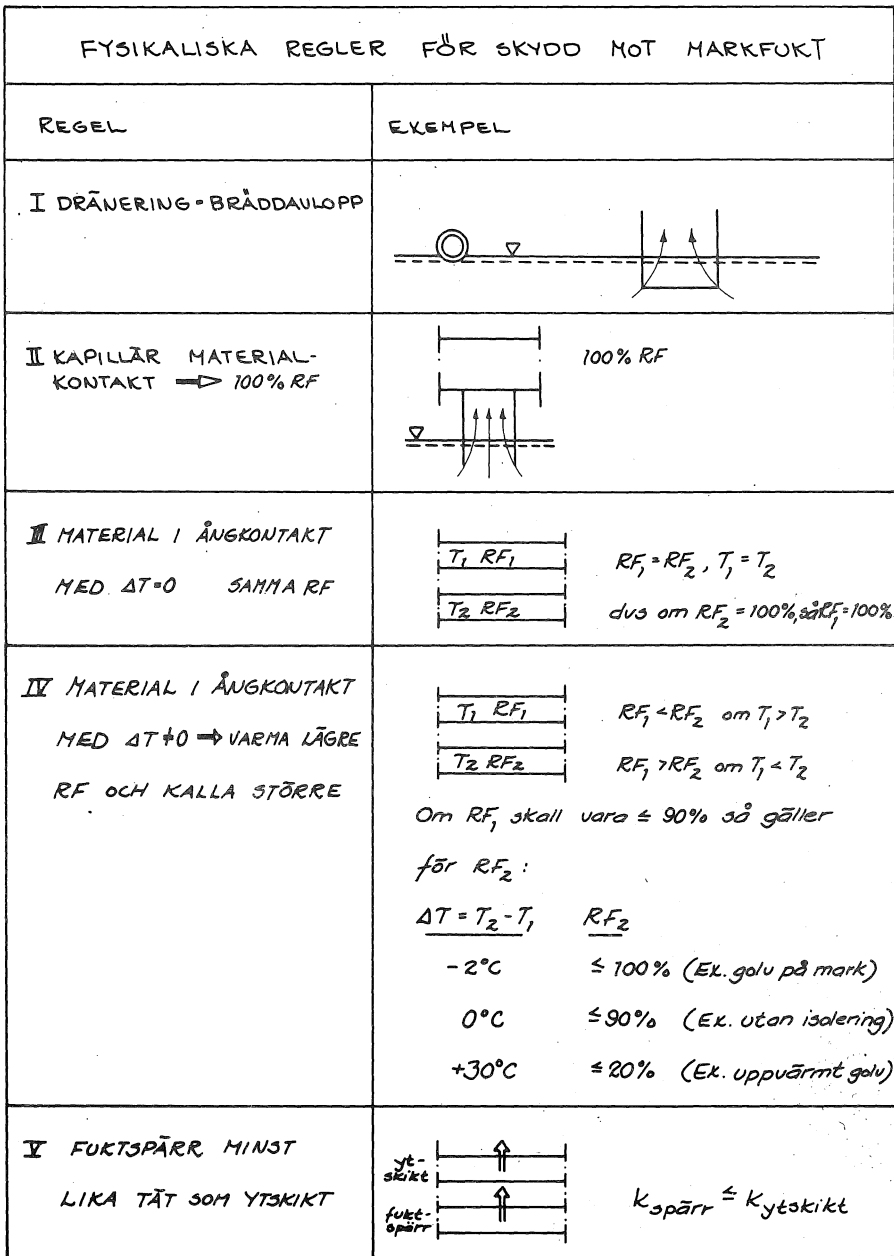 FYSIKALISKA REGLER FÖR SKYDD MOT MARKFUKT
REGEL
EXEMPEL
I DRÄNERING = BRÄDDAVLOPP
II KAPILLÄR MATERIAL-
KONTAKT ⇒ 100% RF
100% RF
III MATERIAL I ÅNGKONTAKT
MED ΔT=0 SAMMA RF
T₁ RF₁
T₂ RF₂
RF₁ = RF₂, T₁ = T₂
dvs om RF₂ = 100%, så RF₁ = 100%
IV MATERIAL I ÅNGKONTAKT
MED ΔT≠0 ⇒ VARMA LÄGRE
RF OCH KALLA STÖRRE
T₁ RF₁
T₂ RF₂
RF₁ < RF₂ om T₁ > T₂
RF₁ > RF₂ om T₁ < T₂
Om RF₁ skall vara ≤ 90% så gäller
för RF₂:
ΔT = T₂ - T₁ RF₂
-2°C ≤ 100% (Ex. golv på mark)
0°C ≤ 90% (Ex. utan isolering)
+30°C ≤ 20% (Ex. uppvärmt golv)
V FUKTSPÄRR MINST
LIKA TÄT SOM YTSKIKT
yt-
skikt
fukt-
spärr
k spärr ≤ k ytskikt